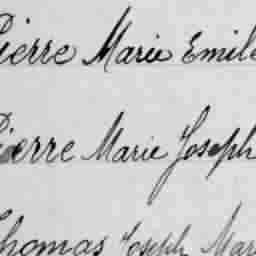 Pierre Marie Emile
Pierre Marie Joseph
Thomas Joseph Mar